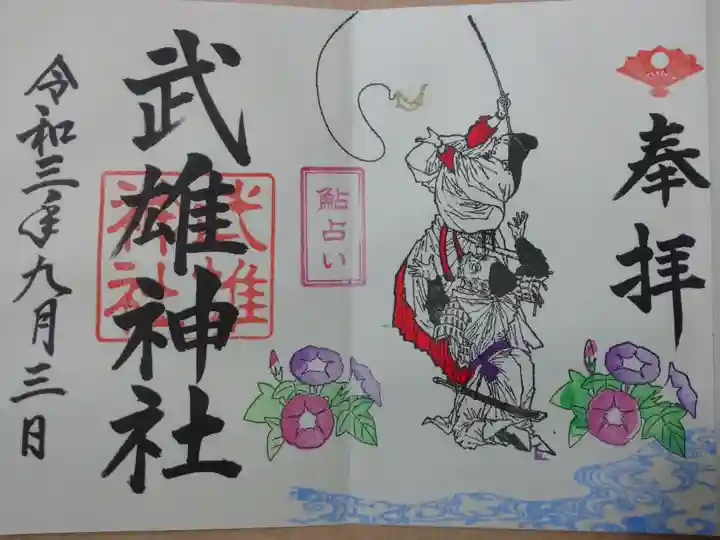 奉拝
鮎占い
武雄神社
武雄
神社
令和三年九月三日